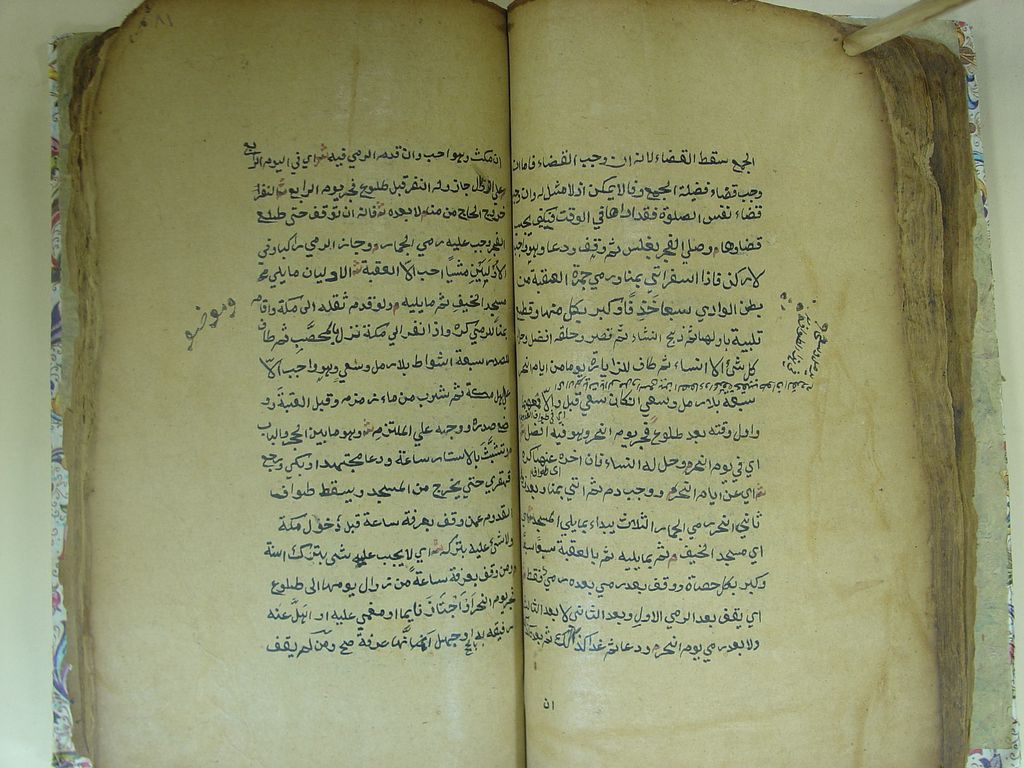 الجمع سقط القضاء لانه ان وجب القضاء فاما ان
وجب قضاء فضيلة الجمع وذا لا يمكن اذ لا مثل له وان وجب
قضاء نفس الصلوة فقد اداها في الوقت فكيف يجب
قضاوها م وصلى الفجر بغلس ثم وقف ودعا وهو واجب
لا ركن فاذا اسفر اتى بمنا ورمى جمرة العقبة من
بطن الوادي سبعا خذفا وكبر بكل منها وقطع
تلبية باولها ثم ذبح ان شاء ثم قصر وحلقه افضل وحل
كل شئ الا النساء ثم طاف للزيارة يوما من ايام النحر
سبعة بلا رمل وسعي ان كان سعى قبل والا فمعهما
واول وقته بعد طلوع فجر يوم النحر وهو فيه افضل
اي في يوم النحر م وحل له النساء فان اخره عنها كره
ش اي عن ايام النحر م ووجب دم ثم اتى بمنا وبعد زوال
ثاني النحر رمى الجمار الثلاث يبداء بما يلي المسجد ش
اي مسجد الخيف م ثم بما يليه ثم بالعقبة سبعا سبعا
وكبر بكل حصاة ووقف بعد رمي بعده رمي فقط ش
اي يقف بعد الرمي الاول وبعد الثاني لا بعد الثالث
ولا بعد رمي يوم النحر م ودعا ثم غدا كذلك ثم بعده كذلك
ان
٨١
ان مكث وهو احب وان قدم الرمي فيه ش اي في اليوم الرابع
على الزوال جاز وله النفر قبل طلوع فجر يوم الرابع ش النفر
خروج الحاج من منى لا بعده ش فانه ان توقف حتى طلع
الفجر وجب عليه رمي الجمار م وجاز الرمي راكبا وفي
الاوليين مشيا احب الا العقبة ش الاوليان ما يلي
مسجد الخيف ثم ما يليه م ولو قدم ثقله الى مكة واقام
بمنا للرمي كره واذا نفر الى مكة نزل بالمحصب ثم طاف
للصدر سبعة اشواط بلا رمل وسعي وهو واجب الا
على اهل مكة ثم شرب من ماء زمزم وقبل العتبة و
وضع صدره ووجهه على الملتزم ش وهو ما بين الحجر والباب
م وتشبث بالاستار ساعة ودعا مجتهدا ويبكي ورجع
قهقري حتى يخرج من المسجد ويسقط طواف
القدوم عمن وقف بعرفة ساعة قبل دخول مكة
ولا شئ عليه بتركه ش اي لا يجب عليه شئ بترك السنة
ومن وقف بعرفة ساعة من زوال يومها الى طلوع
فجر يوم النحر او اجتاز نائما او مغمى عليه او اهل عنه
رفيقه به او جهل انها عرفة صح ومن لم يقف